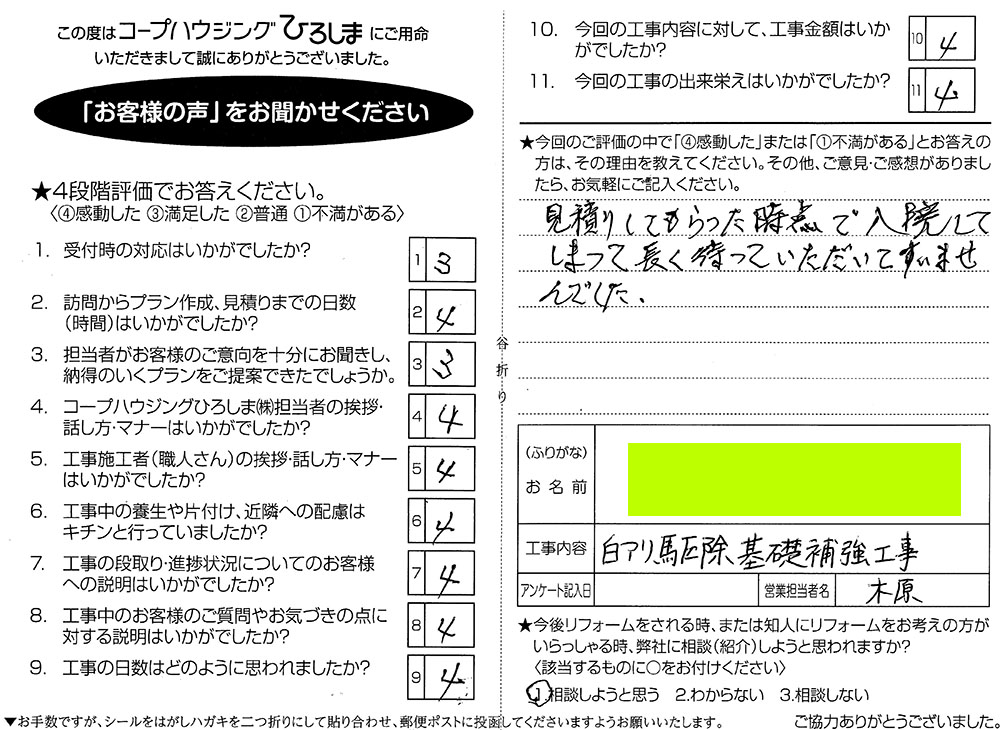 この度はコープハウジングひろしまにご用命
いただきまして誠にありがとうございました。
「お客様の声」をお聞かせください
★4段階評価でお答えください。
〈④感動した ③満足した ②普通 ①不満がある〉
1. 受付時の対応はいかがでしたか?
1 3
2. 訪問からプラン作成、見積りまでの日数
(時間)はいかがでしたか?
2 4
3. 担当者がお客様のご意向を十分にお聞きし、
納得のいくプランをご提案できたでしょうか。
3 3
4. コープハウジングひろしま㈱担当者の挨拶・
話し方・マナーはいかがでしたか?
4 4
5. 工事施工者(職人さん)の挨拶・話し方・マナー
はいかがでしたか?
5 4
6. 工事中の養生や片付け、近隣への配慮は
キチンと行っていましたか?
6 4
7. 工事の段取り・進捗状況についてのお客様
への説明はいかがでしたか?
7 4
8. 工事中のお客様のご質問やお気づきの点に
対する説明はいかがでしたか?
8 4
9. 工事の日数はどのように思われましたか?
9 4
谷折り
10. 今回の工事内容に対して、工事金額はいか
がでしたか?
10 4
11. 今回の工事の出来栄えはいかがでしたか?
11 4
★今回のご評価の中で「④感動した」または「①不満がある」とお答えの
方は、その理由を教えてください。その他、ご意見・ご感想がありまし
たら、お気軽にご記入ください。
見積りしてもらった時点で入院して
しまって長く待っていただいてすいませ
んでした.
(ふりがな)
お名前
工事内容 白アリ駆除基礎補強工事
アンケート記入日 営業担当者名 木原
★今後リフォームをされる時、または知人にリフォームをお考えの方が
いらっしゃる時、弊社に相談(紹介)しようと思われますか?
〈該当するものに○をお付けください〉
1.相談しようと思う 2.わからない 3.相談しない
▼お手数ですが、シールをはがしハガキを二つ折りにして貼り合わせ、郵便ポストに投函してくださいますようお願いいたします。
ご協力ありがとうございました。